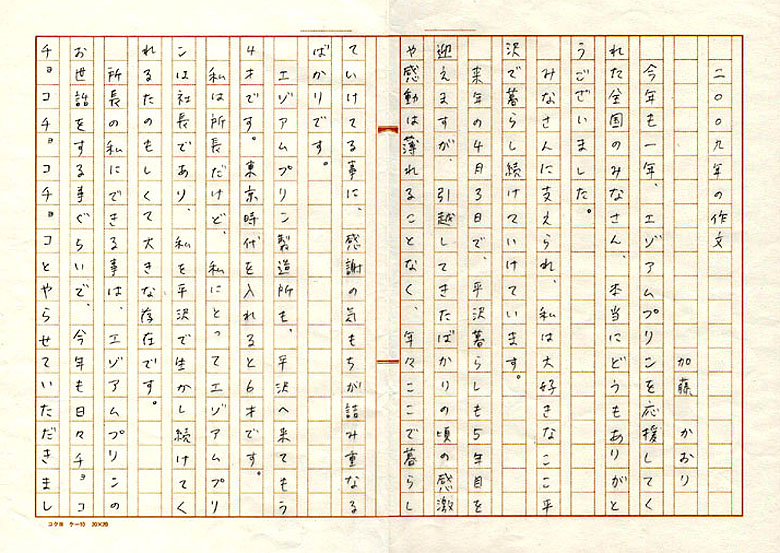 二〇〇九年の作文
加藤 かおり
今年も一年、エゾアムプリンを応援してく
れた全国のみなさん、本当にどうもありがと
うございました。
みなさんに支えられ、私は大好きなここ平
沢で暮らし続けていけています。
来年の4月3日で、平沢暮らしも5年目を
迎えますが、引越してきたばかりの頃の感激
や感動は薄れることなく、年々ここで暮らし
ていけてる事に、感謝の気もちが詰み重なる
ばかりです。
エゾアムプリン製造所も、平沢へ来てもう
4才です。東京時代を入れると6才です。
私は所長だけど、私にとってエゾアムプリ
ンは社長であり、私を平沢で生かし続けてく
れるたのもしくて大きな存在です。
所長の私にできる事は、エゾアムプリンの
お世話をする事ぐらいで、今年も日々チョコ
チョコチョコチョコとやらせていただきまし
コクヨ ケー10 20×20